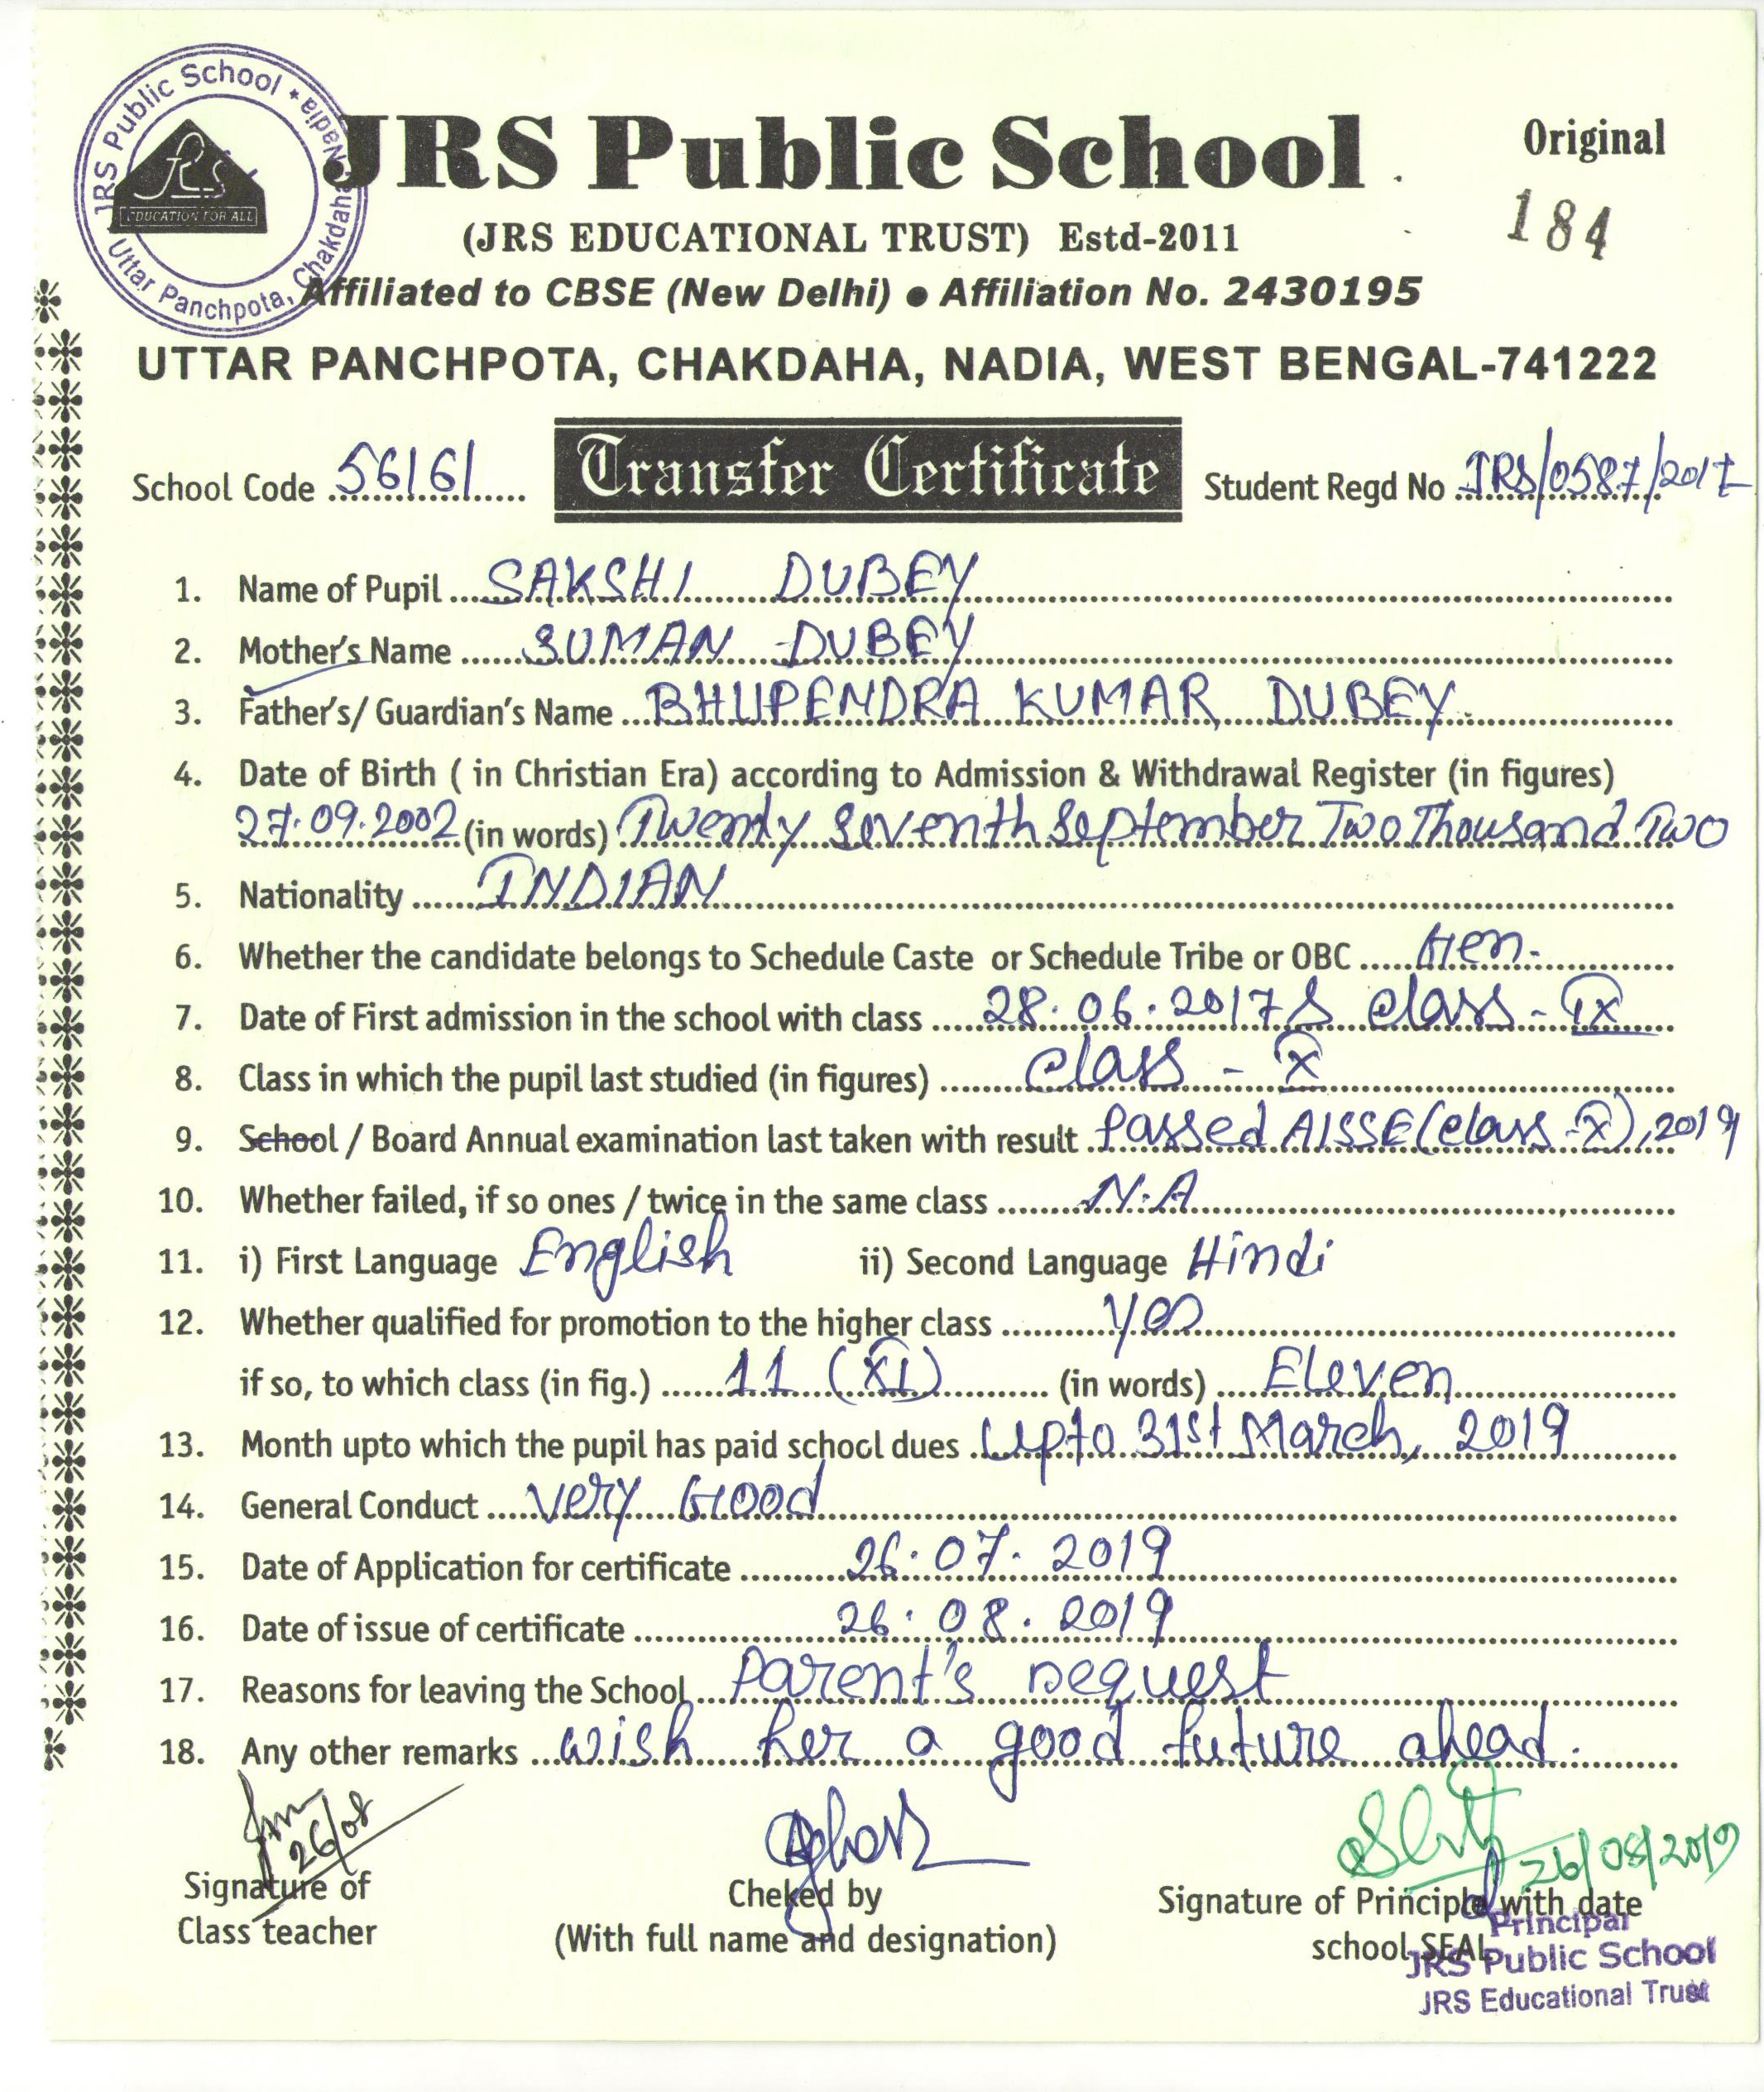 JRS Public School * Uttar Panchpota, Chakdaha, Nadia *
JRS
EDUCATION FOR ALL
JRS Public School
Original
184
(JRS EDUCATIONAL TRUST) Estd-2011
Affiliated to CBSE (New Delhi) ● Affiliation No. 2430195
UTTAR PANCHPOTA, CHAKDAHA, NADIA, WEST BENGAL-741222
School Code 56161
Transfer Certificate
Student Regd No JRS/0587/2017
1. Name of Pupil SAKSHI DUBEY
2. Mother's Name SUMAN DUBEY
3. Father's/ Guardian's Name BHUPENDRA KUMAR DUBEY
4. Date of Birth ( in Christian Era) according to Admission & Withdrawal Register (in figures)
27.09.2002 (in words) Twenty Seventh September Two Thousand Two
5. Nationality INDIAN
6. Whether the candidate belongs to Schedule Caste or Schedule Tribe or OBC Gen.
7. Date of First admission in the school with class 28.06.2017 & class - IX
8. Class in which the pupil last studied (in figures) class - X
9. School / Board Annual examination last taken with result Passed AISSE (class - X), 2019
10. Whether failed, if so ones / twice in the same class N.A
11. i) First Language English ii) Second Language Hindi
12. Whether qualified for promotion to the higher class yes
if so, to which class (in fig.) 11 (XI) (in words) Eleven
13. Month upto which the pupil has paid school dues Upto 31st March, 2019
14. General Conduct very Good
15. Date of Application for certificate 26.07.2019
16. Date of issue of certificate 26.08.2019
17. Reasons for leaving the School Parent's request
18. Any other remarks wish her a good future ahead.
26/08
26/08/2019
Signature of
Class teacher
Cheked by
(With full name and designation)
Signature of Principle with date
school SEAL
Principal
JRS Public School
JRS Educational Trust